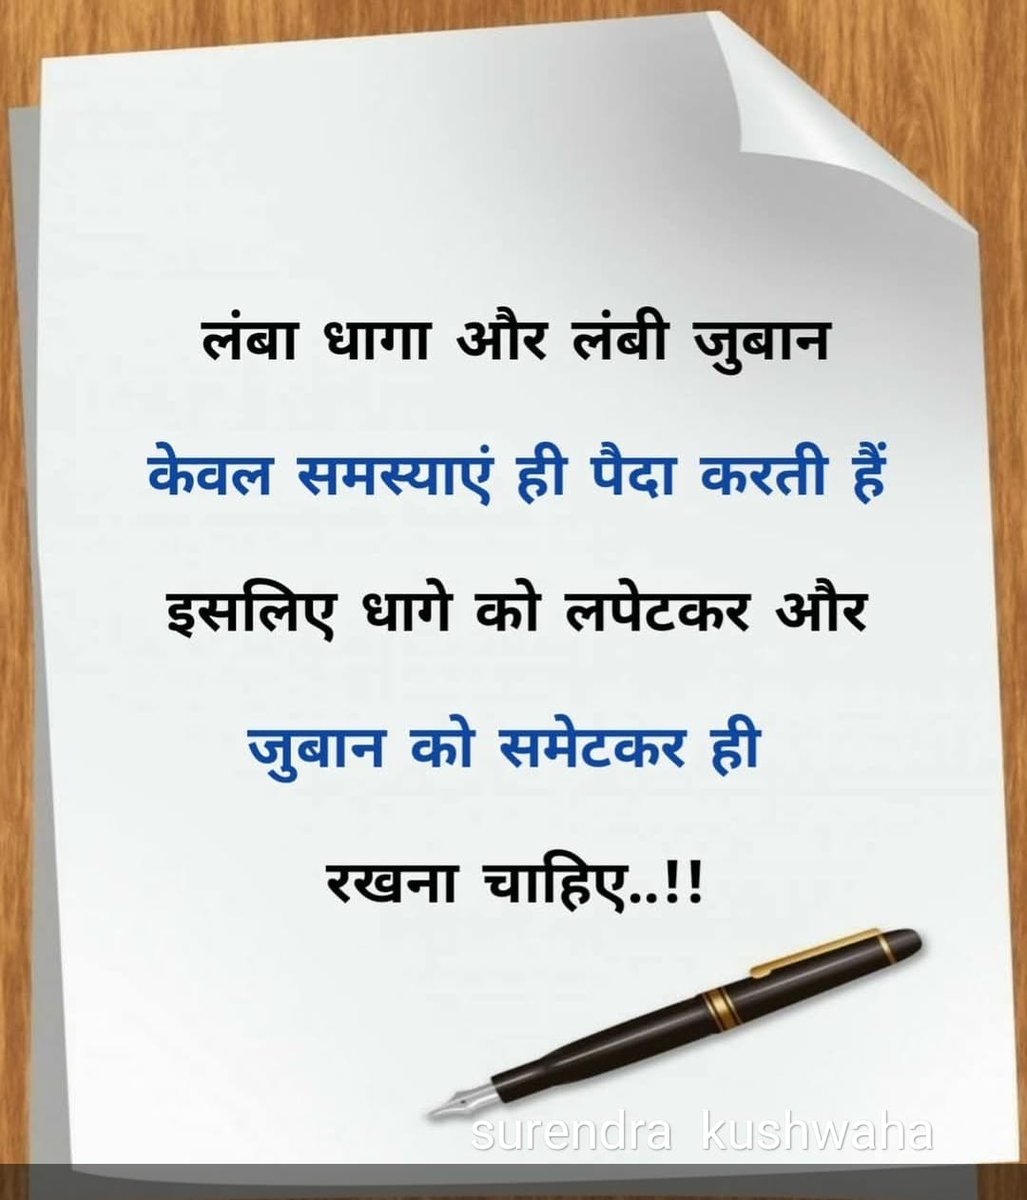 लंबा धागा और लंबी जुबान
केवल समस्याएं ही पैदा करती हैं
इसलिए धागे को लपेटकर और
जुबान को समेटकर ही
रखना चाहिए..!!
surendra kushwaha